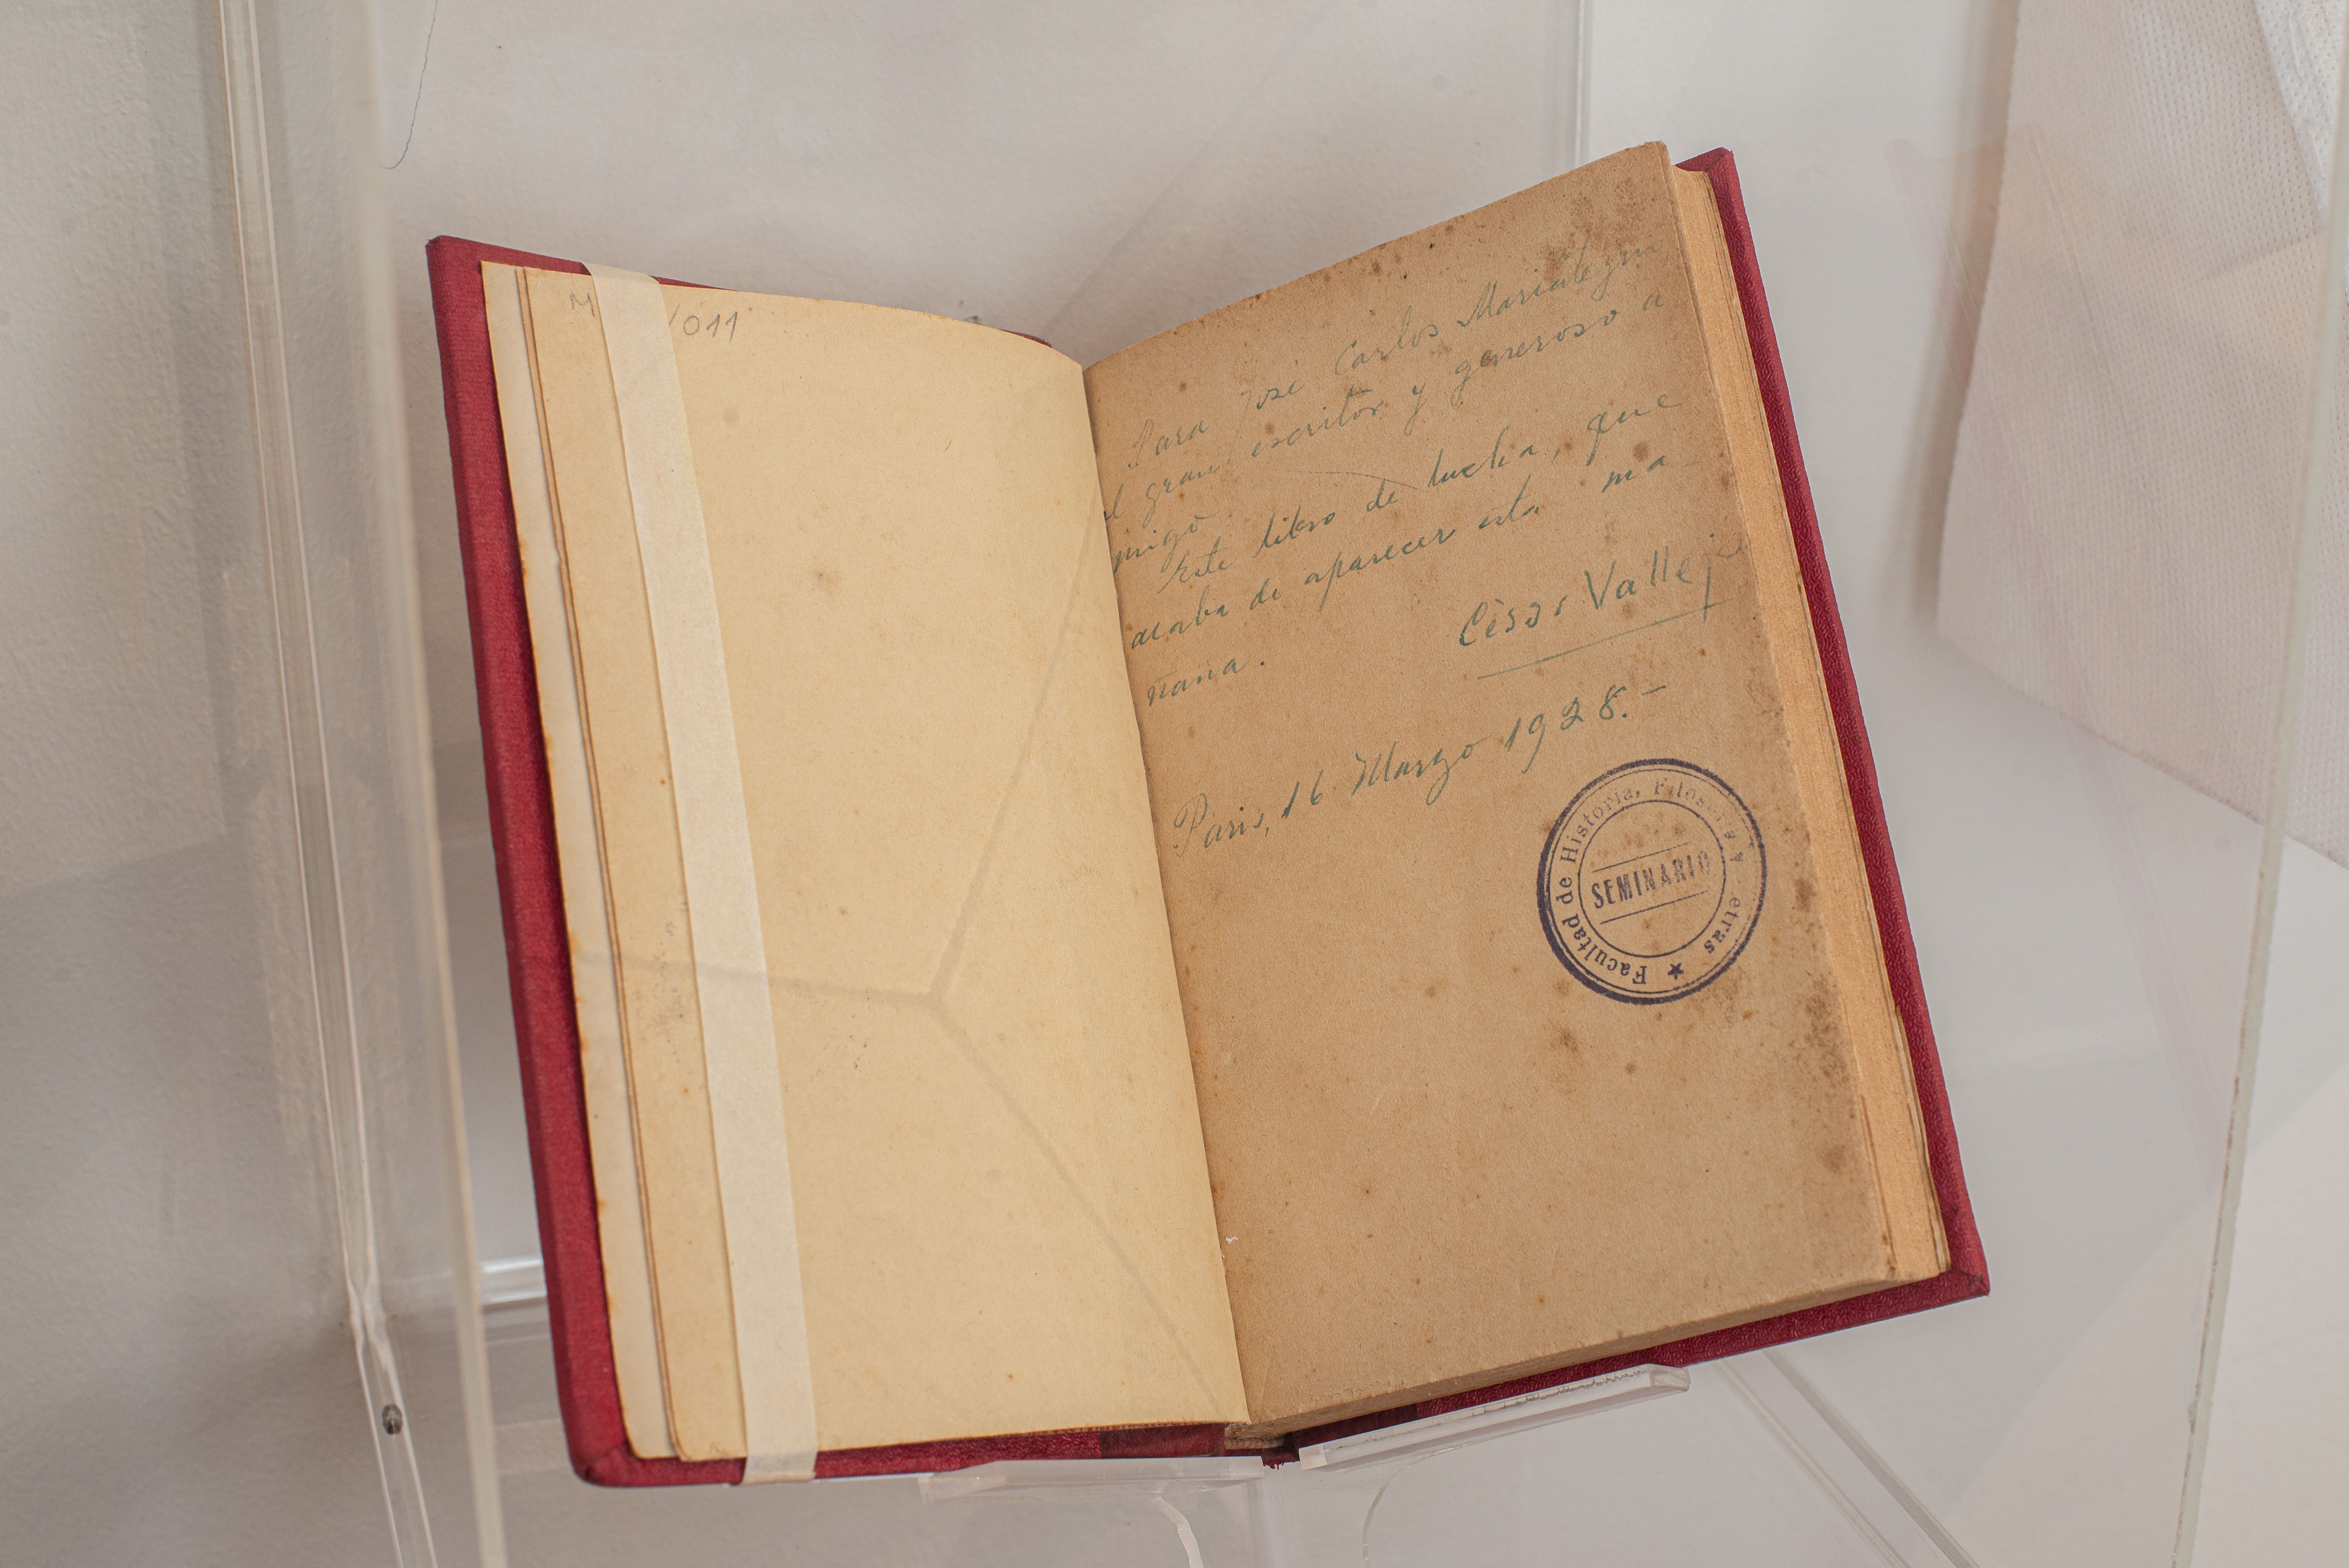 /011
Para José Carlos Mariátegui
al gran escritor y generoso a
migo.
Este libro de lucha, que
acaba de aparecer esta ma
ñana.
César Vallejo
Paris, 16 Marzo 1928.-
Facultad de Historia, Filosofia y Letras
SEMINARIO